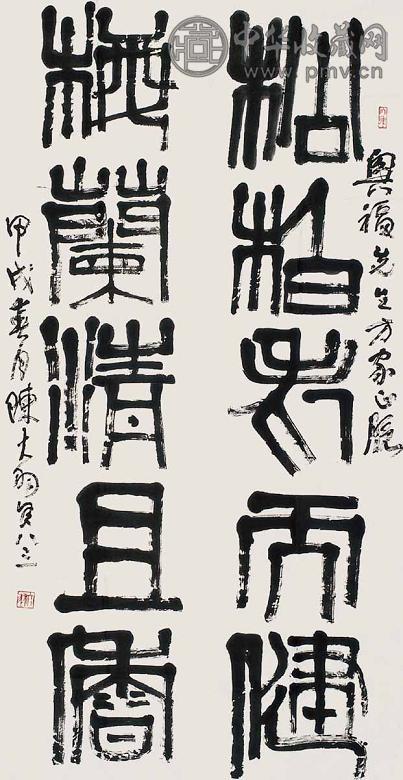 中华收藏网
www.pmv.cn
興福先生方家正腕
松柏老而健
梅蘭清且香
甲戌春月陳大羽年八三